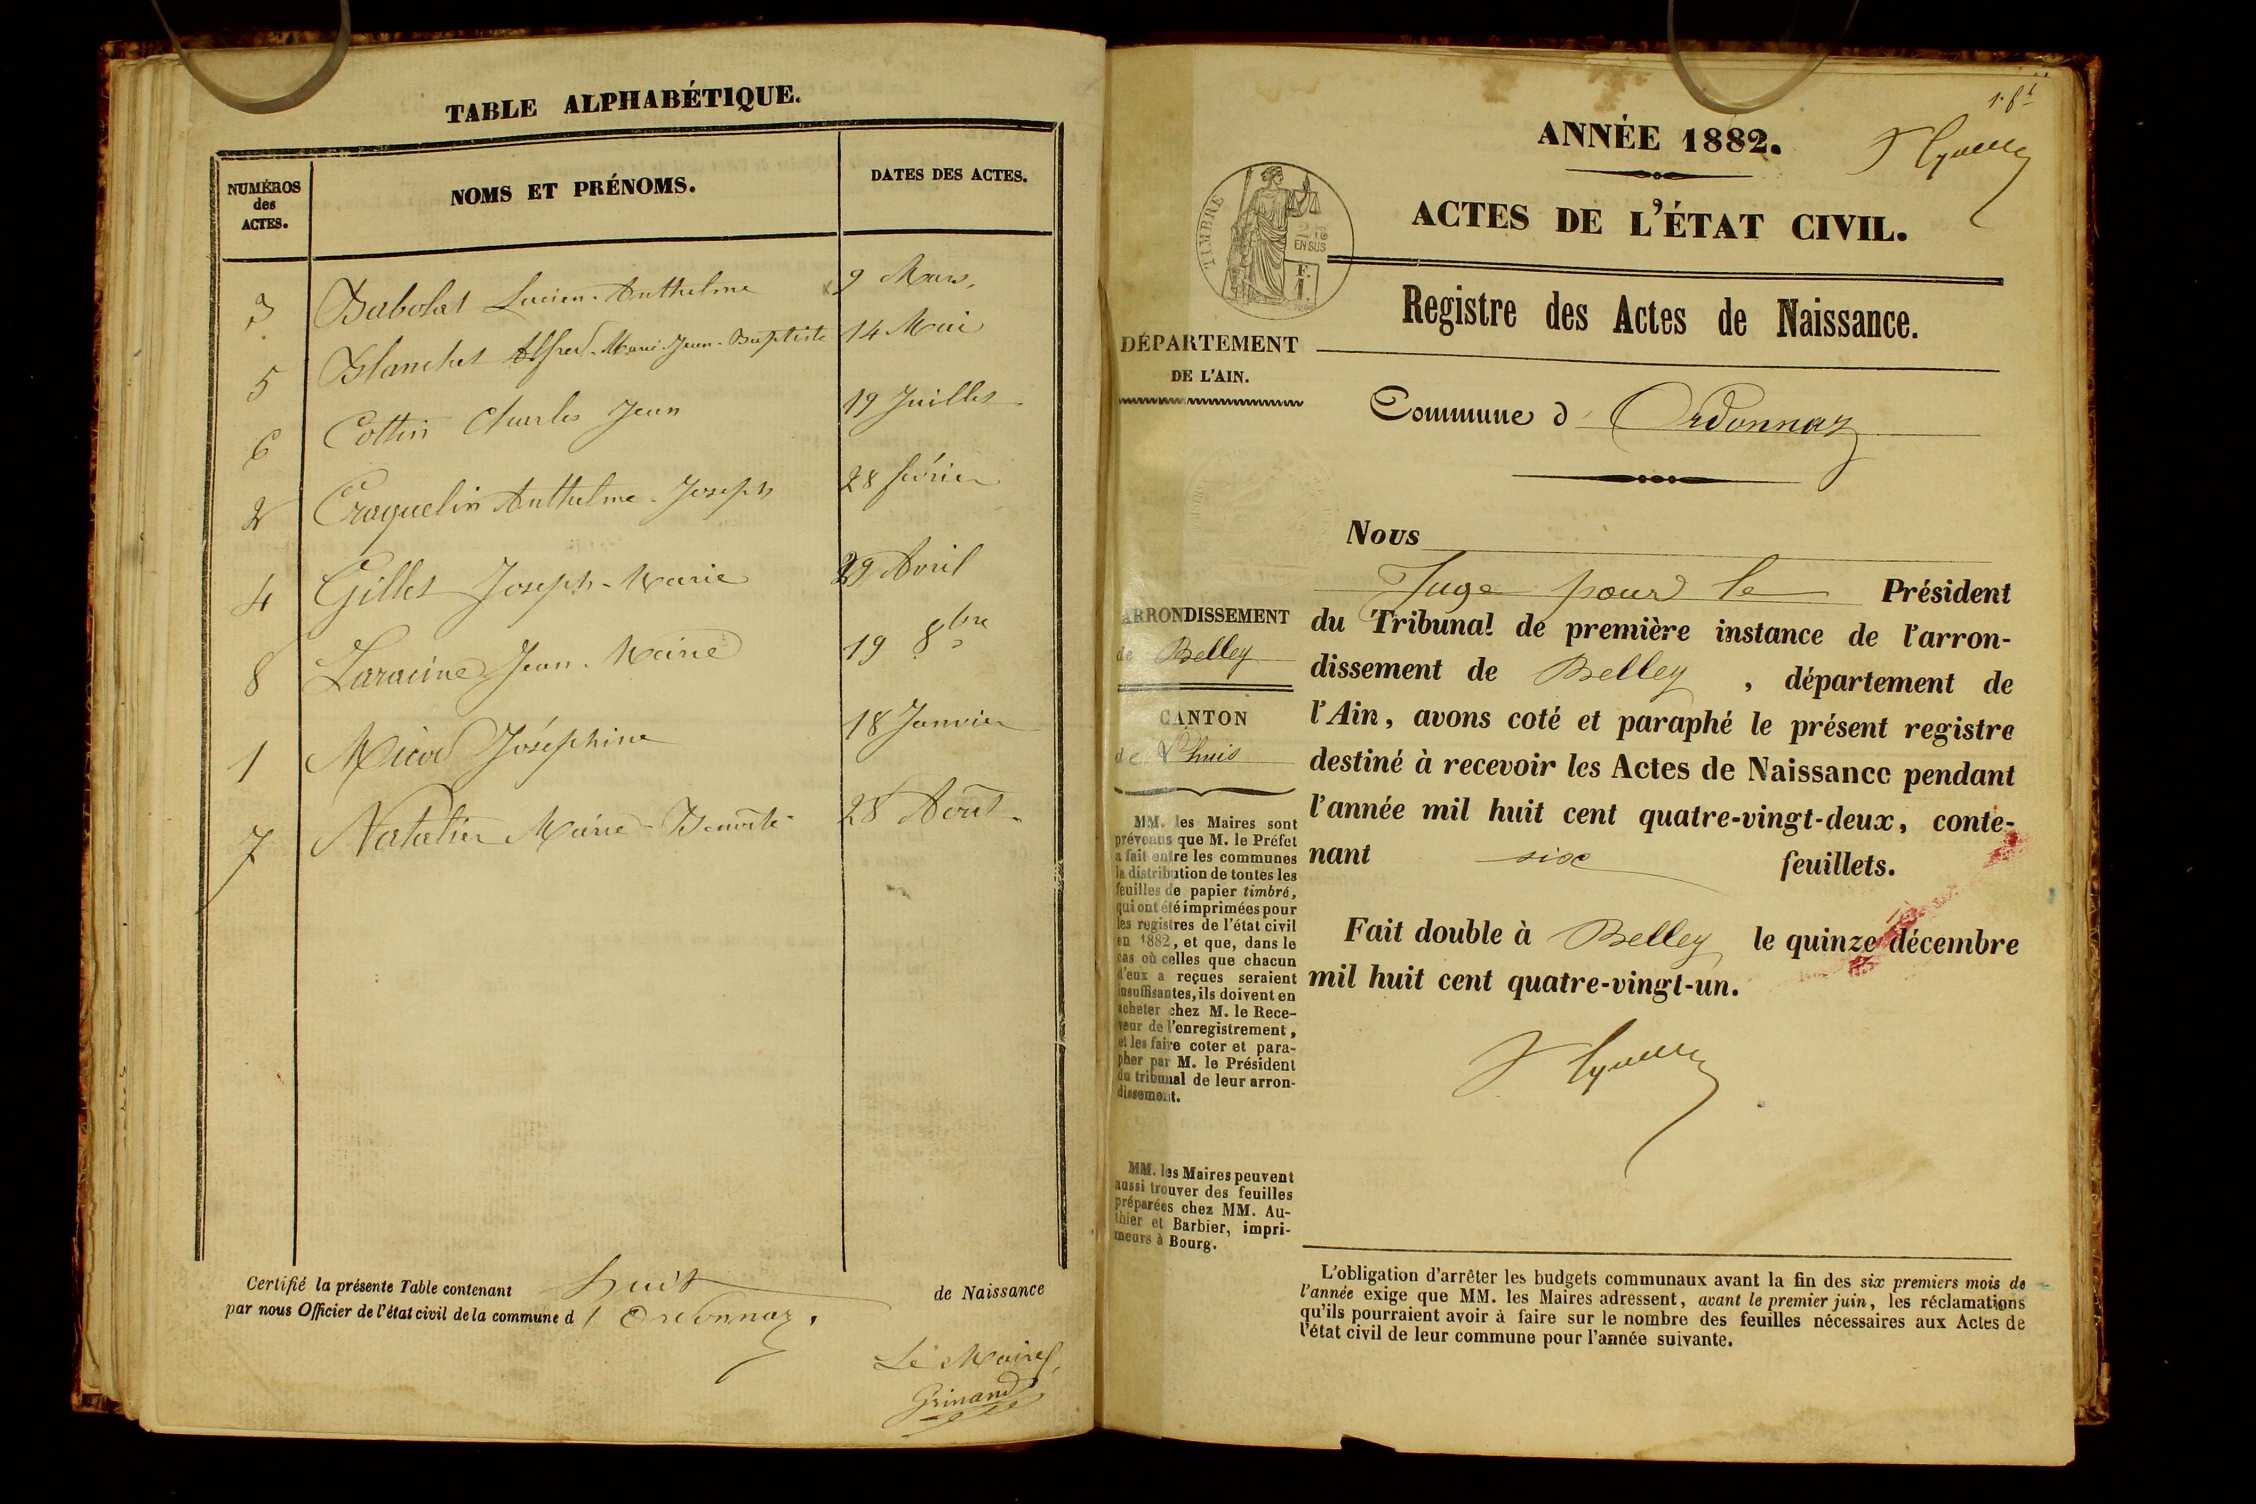 TABLE ALPHABÉTIQUE.
NUMÉROS
des
ACTES.
NOMS ET PRÉNOMS.
DATES DES ACTES.
3 Babolat Lucien-Anthelme 9 Mars,
5 Blanchet Alfred-Marie-Jean-Baptiste 14 Mai
6 Cottin Charles Jean 19 Juillet
2 Craquelin Anthelme-Joseph 28 février
4 Gillet Joseph-Marie 29 Avril
8 Laracine Jean-Marie 19 8bre
1 Micod Joséphine 18 Janvier
7 Marie-Benoîte 28 Août
Certifié la présente Table contenant huit de Naissance
par nous Officier de l'état civil de la commune d'Ordonnaz.
Le Maire,
Grinand
1. ft
ANNÉE 1882.
ACTES DE L'ÉTAT CIVIL.
TIMBRE
2/10
EN SUS
F.
1.
Registre des Actes de Naissance.
DÉPARTEMENT
DE L'AIN.
Commune d'Ordonnaz
Nous
Juge pour le Président
du Tribunal de première instance de l'arron-
dissement de Belley, département de
l'Ain, avons coté et paraphé le présent registre
destiné à recevoir les Actes de Naissance pendant
l'année mil huit cent quatre-vingt-deux, conte-
nant six feuillets.
Fait double à Belley le quinze décembre
mil huit cent quatre-vingt-un.
ARRONDISSEMENT
de Belley
CANTON
de Lhuis
MM. les Maires sont
prévenus que M. le Préfet
a fait entre les communes
la distribution de toutes les
feuilles de papier timbré,
qui ont été imprimées pour
les registres de l'état civil
en 1882, et que, dans le
cas où celles que chacun
d'eux a reçues seraient
insuffisantes, ils doivent en
acheter chez M. le Rece-
veur de l'enregistrement,
et les faire coter et para-
pher par M. le Président
du tribunal de leur arron-
dissement.
MM. les Maires peuvent
aussi trouver des feuilles
préparées chez MM. Au-
thier et Barbier, impri-
meurs à Bourg.
L'obligation d'arrêter les budgets communaux avant la fin des six premiers mois de
l'année exige que MM. les Maires adressent, avant le premier juin, les réclamations
qu'ils pourraient avoir à faire sur le nombre des feuilles nécessaires aux Actes de
l'état civil de leur commune pour l'année suivante.